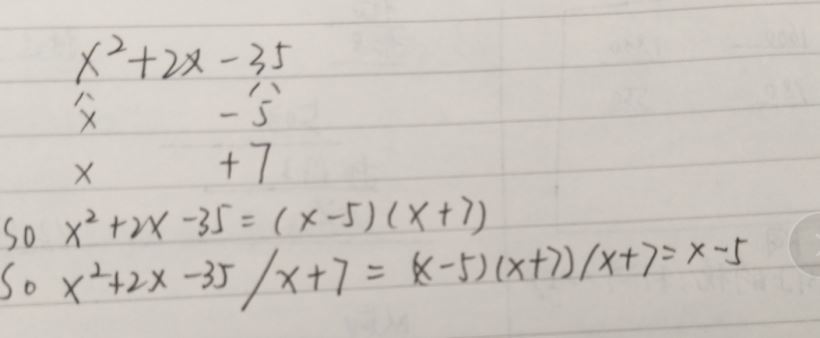 x²+2x-35
x -5
x +7
So x²+2x-35=(x-5)(x+7)
So x²+2x-35/x+7=(x-5)(x+7)/x+7=x-5